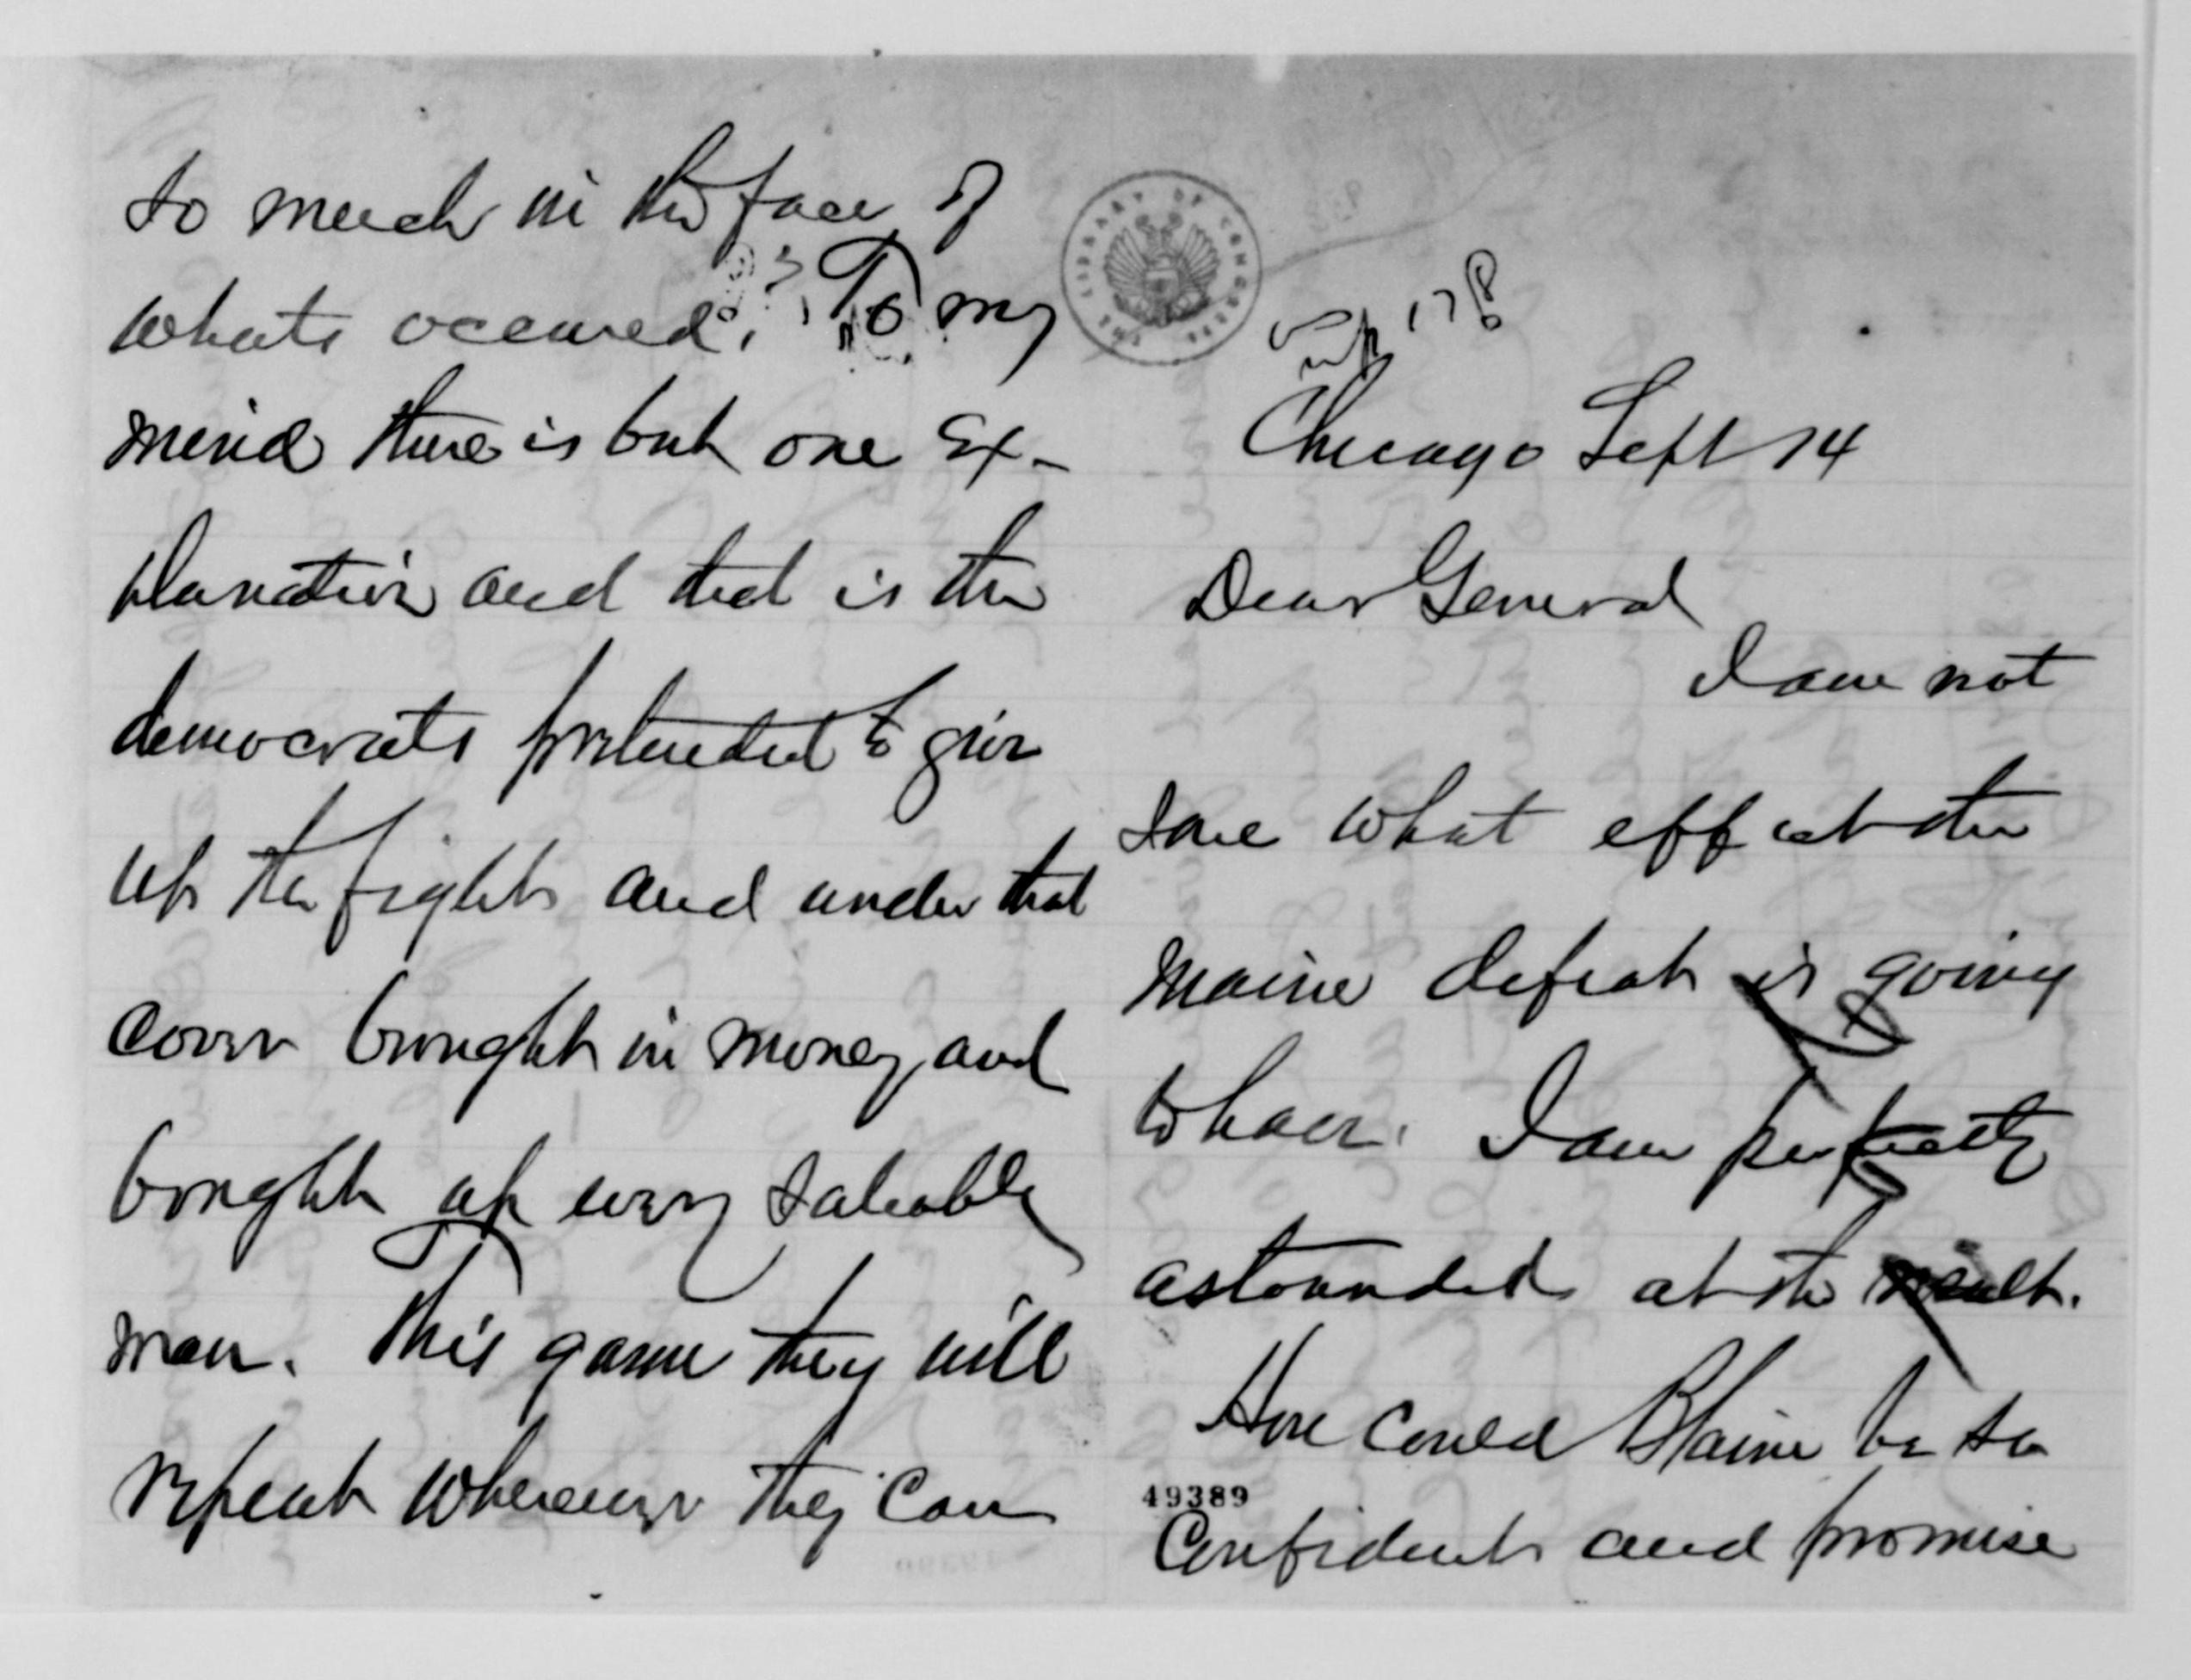 Sept 17 8
Chicago Sept 14
Dear General
I am not
sure what effect the
Maine defeat is going
to have. I am perfectly
astounded at the result.
How could Blaine be so
49389
Confident and promise
so much in the face of
whats occured. To my
mind there is but one Ex-
planation and that is the
democrats pretended to give
up the fight and under that
cover brought in money and
bought up every saleable
man. This game they will
repeat wherever they can
THE LIBRARY OF CONGRESS